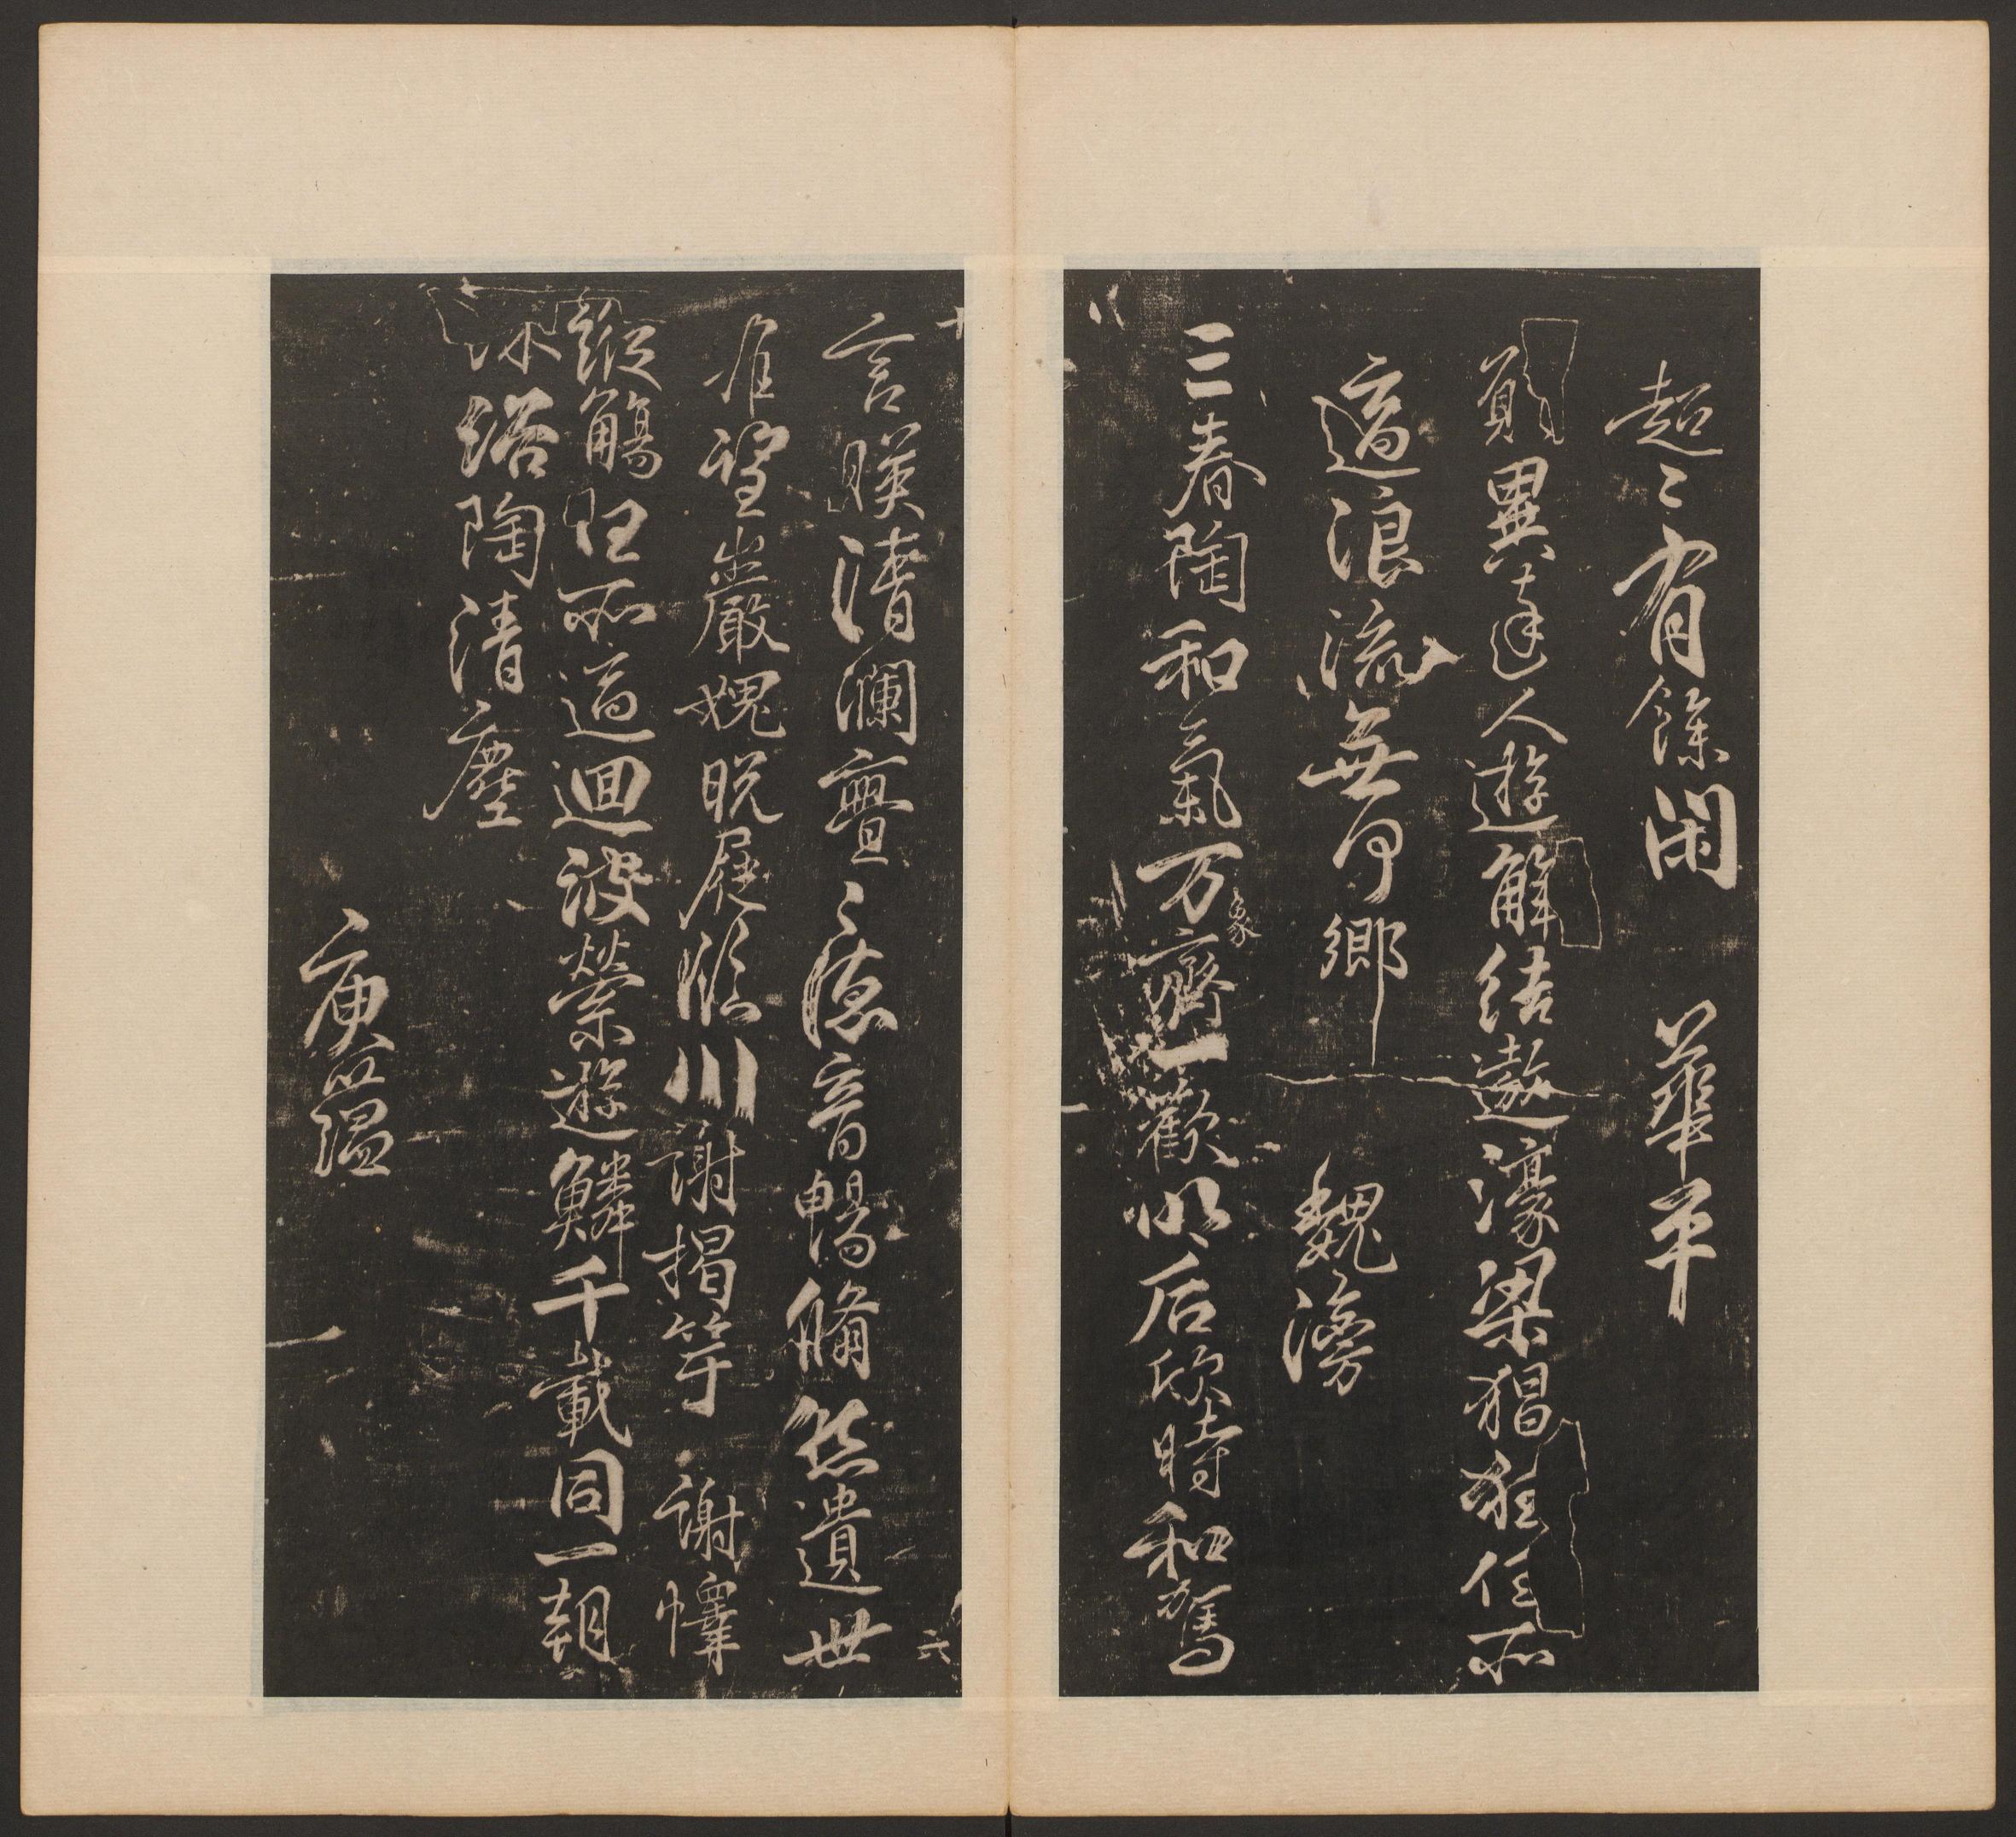 超〻有餘閑　華平
願與達人遊解結遨濠梁猖狂任所
適浪流無何鄉　魏滂
三春陶和氣万象齊一歡明后欣時和駕
言暎清瀾亹〻德音暢脩然遺世
難望巖愧脫屣臨川謝揭竿　謝懌
縱觴任所適迴波縈遊鱗千載同一朝
沐浴陶清塵
庾蘊
六